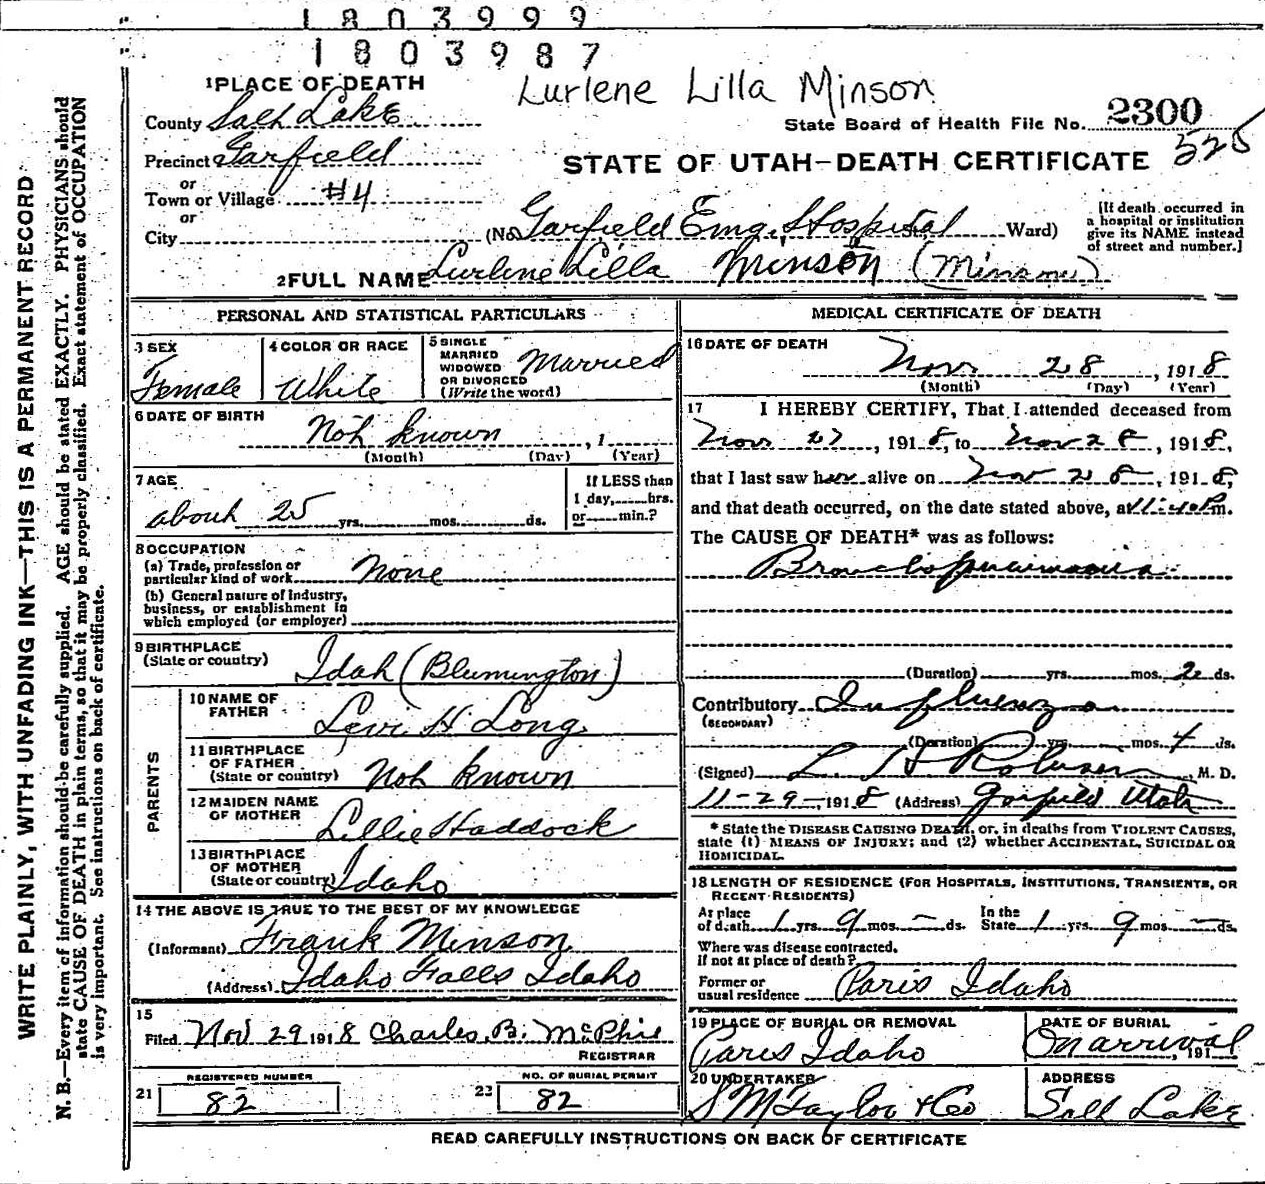 1803999
1803987
Lurlene Lilla Minson
1 PLACE OF DEATH
County Salt Lake
State Board of Health File No. 2300
525
Precinct Garfield
STATE OF UTAH—DEATH CERTIFICATE
or
Town or Village #4
or
City
(No. Garfield Emg. Hospital Ward)
[If death occurred in
a hospital or institution
give its NAME instead
of street and number.]
2 FULL NAME Lurlene Lilla Minson (Minson)
PERSONAL AND STATISTICAL PARTICULARS
3 SEX
Female
4 COLOR OR RACE
White
5 SINGLE
MARRIED
WIDOWED
OR DIVORCED
(Write the word)
Married
6 DATE OF BIRTH
Not known , 1
(Month) (Day) (Year)
7 AGE
about 25 yrs. mos. ds.
If LESS than
1 day, hrs.
or min.?
8 OCCUPATION
(a) Trade, profession or
particular kind of work None
(b) General nature of industry,
business, or establishment in
which employed (or employer)
9 BIRTHPLACE
(State or country) Idah (Blumington)
PARENTS
10 NAME OF
FATHER Levi H. Long
11 BIRTHPLACE
OF FATHER
(State or country) Not known
12 MAIDEN NAME
OF MOTHER Lillie Haddock
13 BIRTHPLACE
OF MOTHER
(State or country) Idaho
14 THE ABOVE IS TRUE TO THE BEST OF MY KNOWLEDGE
(Informant) Frank Minson
(Address) Idaho Falls Idaho
15
Filed Nov 29 1918 Charles B. McPhie
REGISTRAR
REGISTERED NUMBER
21 82
NO. OF BURIAL PERMIT
22 82
MEDICAL CERTIFICATE OF DEATH
16 DATE OF DEATH
Nov 28, 1918
(Month) (Day) (Year)
17 I HEREBY CERTIFY, That I attended deceased from
Nov 27, 1918, to Nov 28, 1918,
that I last saw her alive on Nov 28, 1918,
and that death occurred, on the date stated above, at 11:40 P.m.
The CAUSE OF DEATH* was as follows:
Bronchopneumonia
(Duration) yrs. mos. 2 ds.
Contributory Influenza
(SECONDARY)
(Duration) yrs. mos. 4 ds.
(Signed) L. H. Robinson, M. D.
11-29-, 1918 (Address) Garfield Utah
* State the DISEASE CAUSING DEATH, or, in deaths from VIOLENT CAUSES,
state (1) MEANS OF INJURY; and (2) whether ACCIDENTAL, SUICIDAL OR
HOMICIDAL.
18 LENGTH OF RESIDENCE (FOR HOSPITALS, INSTITUTIONS, TRANSIENTS, OR
RECENT RESIDENTS)
At place
of death 1 yrs. 9 mos. — ds.
In the
State 1 yrs. 9 mos. — ds.
Where was disease contracted.
if not at place of death?
Former or
usual residence Paris Idaho
19 PLACE OF BURIAL OR REMOVAL
Paris Idaho
DATE OF BURIAL
On arrival, 191
20 UNDERTAKER
S M Taylor & Co
ADDRESS
Salt Lake
READ CAREFULLY INSTRUCTIONS ON BACK OF CERTIFICATE
WRITE PLAINLY, WITH UNFADING INK—THIS IS A PERMANENT RECORD
N. B.—Every item of information should be carefully supplied. AGE should be stated EXACTLY. PHYSICIANS should
state CAUSE OF DEATH in plain terms, so that it may be properly classified. Exact statement of OCCUPATION
is very important. See instructions on back of certificate.